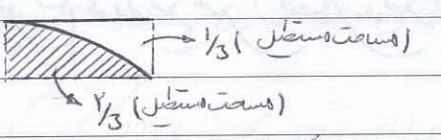 1/3 (مساحت مستطیل)
۲/3 (مساحت مستطیل)